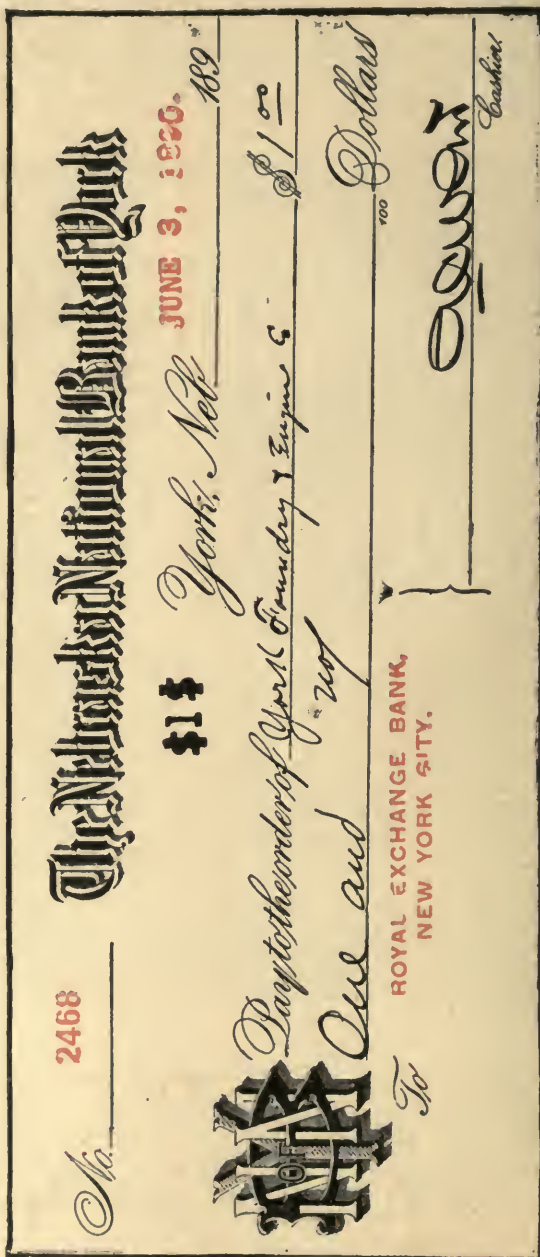 No. 2468 The Nebraska National Bank of York
$1$ York, Neb. JUNE 3, 1890. 189
Pay to the order of York Foundry & Engine C $1 00
One and no/100 Dollars
To ROYAL EXCHANGE BANK,
NEW YORK CITY.
Cashier.